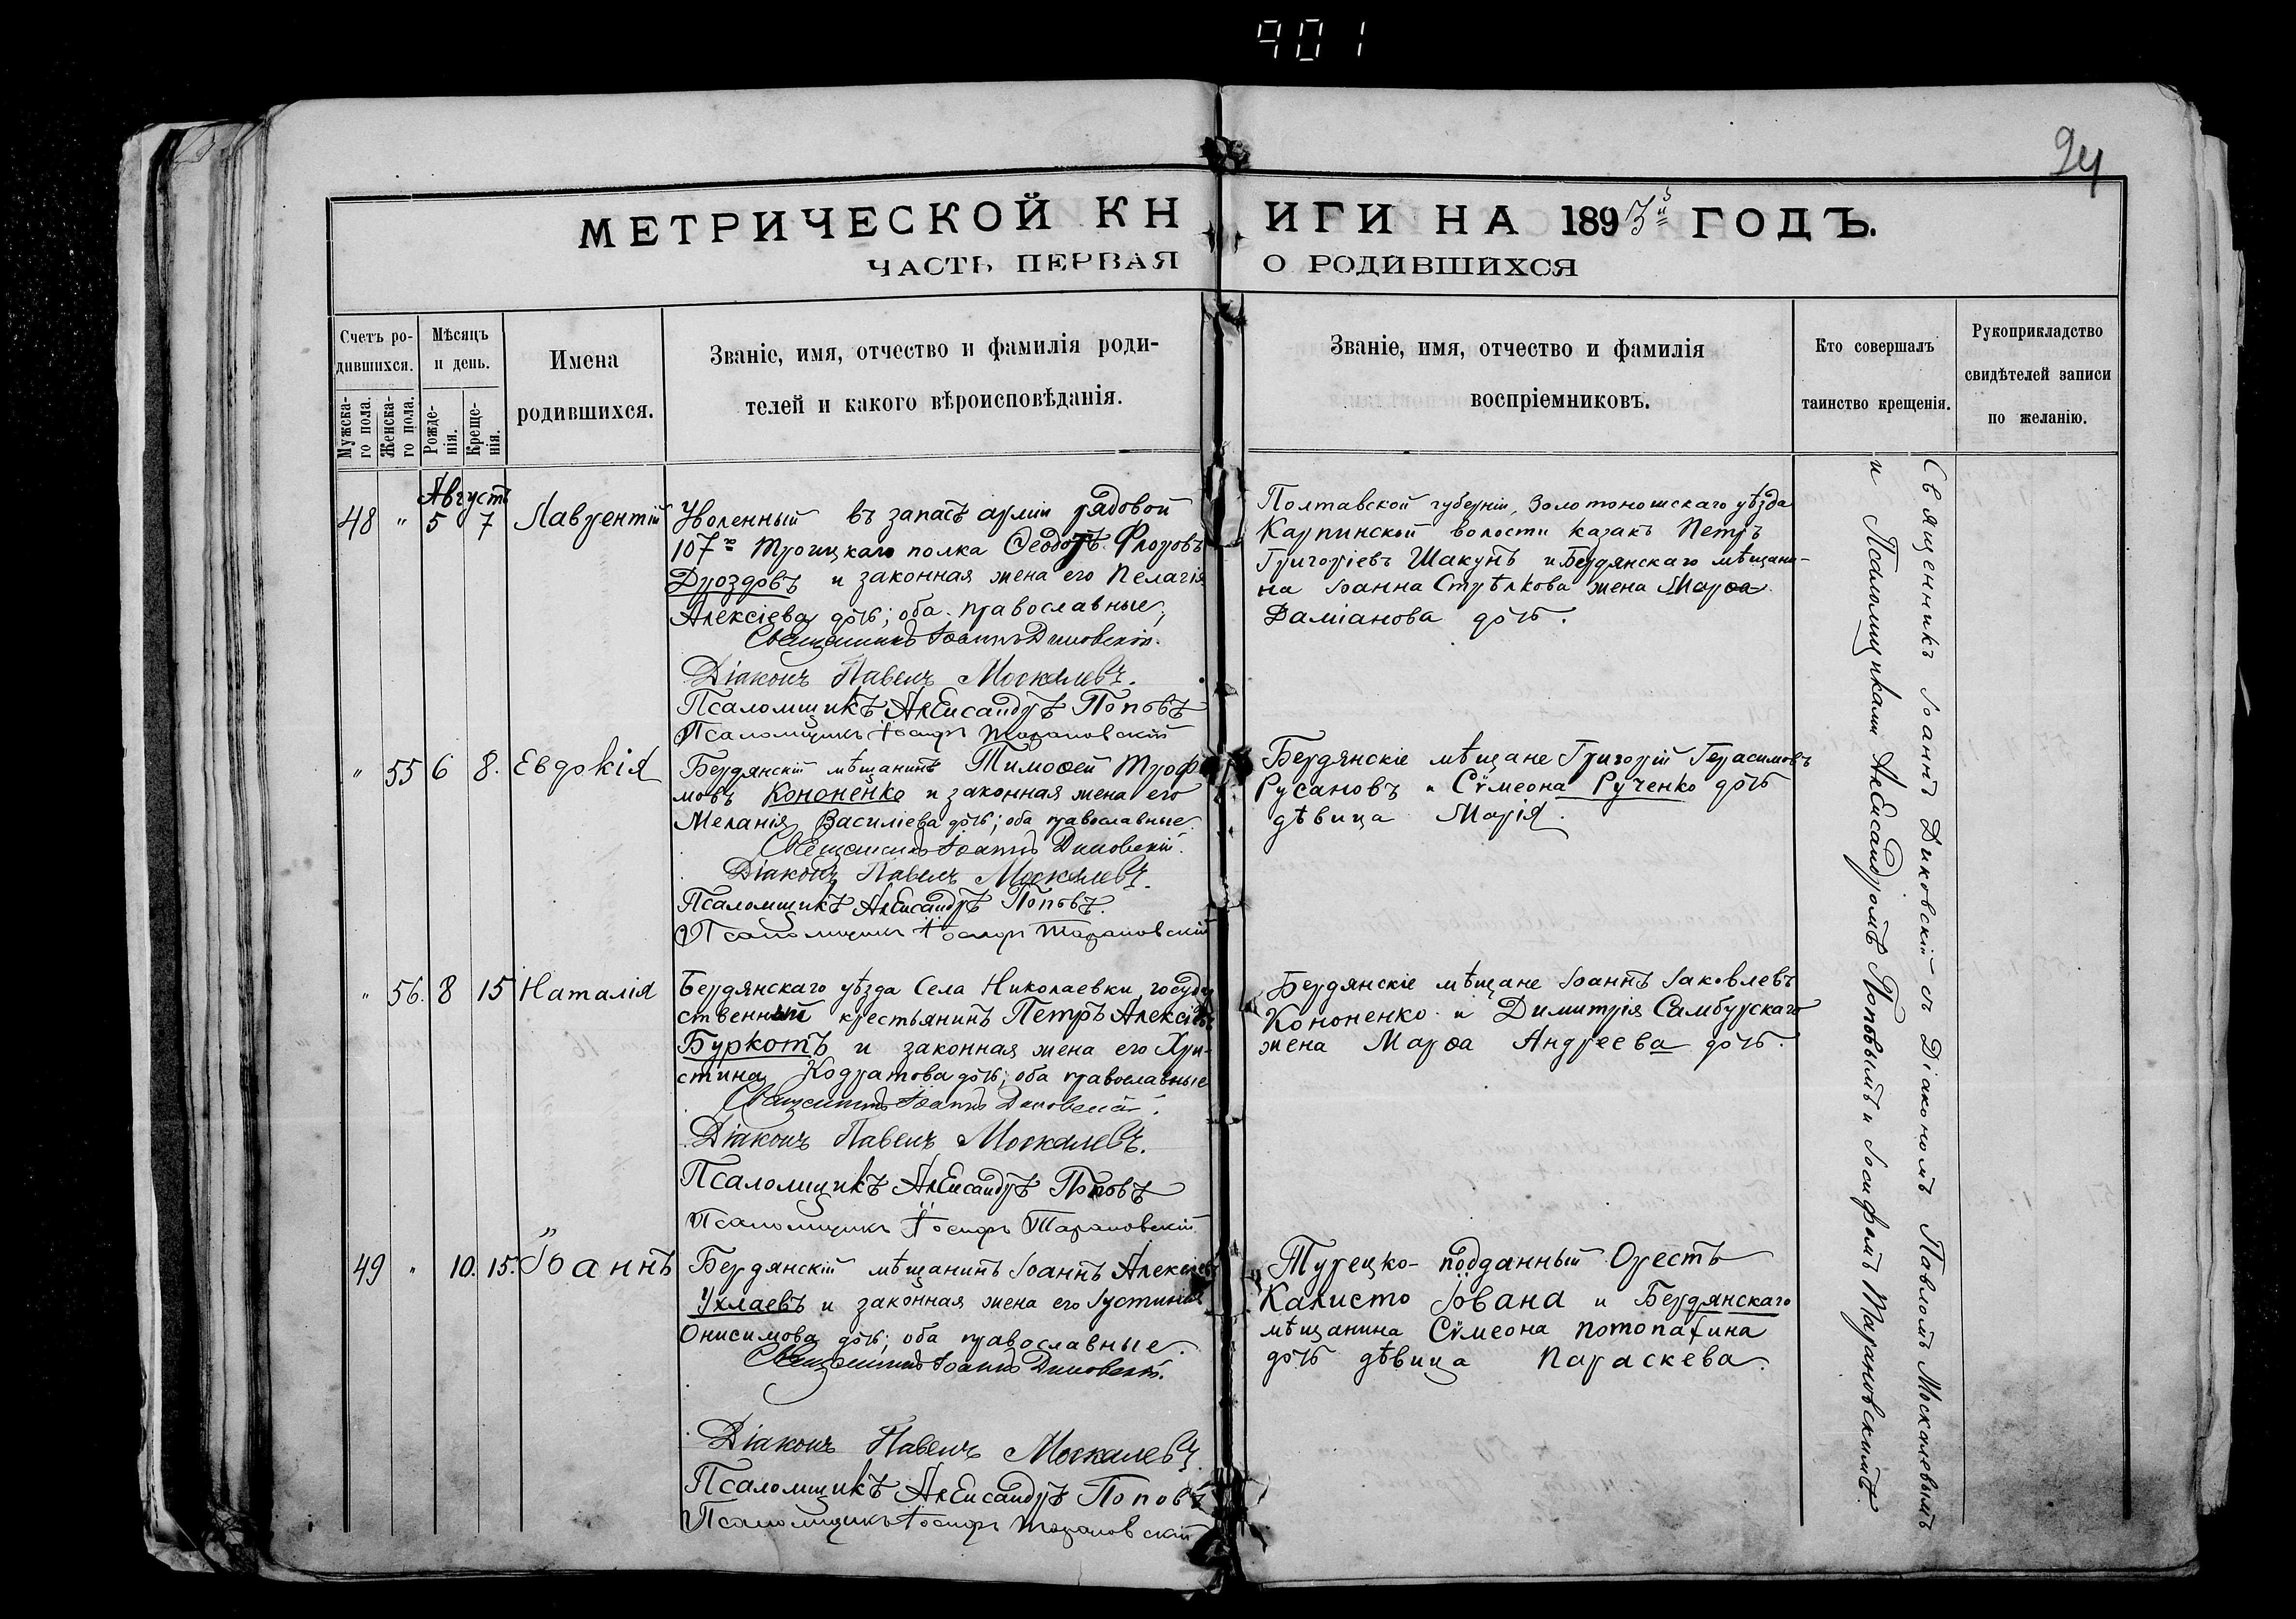 901
94
МЕТРИЧЕСКОЙ КНИГИ НА 1893й ГОДЪ.
ЧАСТЬ ПЕРВАЯ О РОДИВШИХСЯ
Счетъ ро-
дившихся.
Мужска-
го пола.
Женска-
го пола.
Мѣсяцъ
и день.
Рожде-
нія.
Креще-
нія.
Имена
родившихся.
Званіе, имя, отчество и фамилія роди-
телей и какого вѣроисповѣданія.
Званіе, имя, отчество и фамилія
воспріемниковъ.
Кто совершалъ
таинство крещенія.
Рукоприкладство
свидѣтелей записи
по желанію.
Августъ
48 " 5 7 Лаврентій
Уволенный въ запасъ арміи рядовой
107го Троицкаго полка Ѳеодоръ Флоровъ
Дроздовъ и законная жена его Пелагія
Алексіева дочь; оба православные;
Священникъ Іоаннъ Диковскій.
Діаконъ Павелъ Москалевъ.
Псаломщикъ Александръ Поповъ
Псаломщикъ Іосифъ Тарановскій
Полтавской губерніи, Золотоношскаго уѣзда
Карпинской волости казакъ Петръ
Григоріевъ Шакунъ и Бердянскаго мѣщани-
на Іоанна Стрѣлкова жена Марѳа
Даміанова дочь.
" 55 6 8. Евдокія
Бердянскій мѣщанинъ Тимоѳей Трофи
мовъ Кононенко и законная жена его
Меланія Василіева дочь; оба православные.
Священникъ Іоаннъ Диковскій.
Діаконъ Павелъ Москалевъ.
Псаломщикъ Александръ Поповъ.
Псаломщикъ Іосифъ Тарановскій
Бердянскіе мѣщане Григорій Герасимовъ
Русановъ и Сѵмеона Рученко дочь
дѣвица Марія.
" 56. 8 15 Наталія
Бердянскаго уѣзда Села Николаевки, государ
ственный крестьянинъ Петръ Алексіевъ
Буркотъ и законная жена его Хри-
стина Кодратова дочь; оба православные
Священникъ Іоаннъ Диковскій.
Діаконъ Павелъ Москалевъ.
Псаломщикъ Александръ Поповъ
Псаломщикъ Іосифъ Тарановскій
Бердянскіе мѣщане Іоаннъ Іаковлевъ
Кононенко и Димитрія Самбурскаго
жена Марѳа Андреева дочь.
49 " 10. 15. Іоаннъ
Бердянскій мѣщанинъ Іоаннъ Алексіевъ
Ухлаевъ и законная жена его Іустинія
Онисимова дочь; оба православные.
Священникъ Іоаннъ Диковскій.
Діаконъ Павелъ Москалевъ.
Псаломщикъ Александръ Поповъ
Псаломщикъ Іосифъ Тарановскій
Турецко-подданный Орестъ
Калисто Іована и Бердянскаго
мѣщанина Сѵмеона Потопахина
дочь дѣвица Параскева.
Священникъ Іоаннъ Диковскій съ Діакономъ Павломъ Москалевымъ
и Псаломщиками Александромъ Поповымъ и Іосифомъ Тарановскимъ.